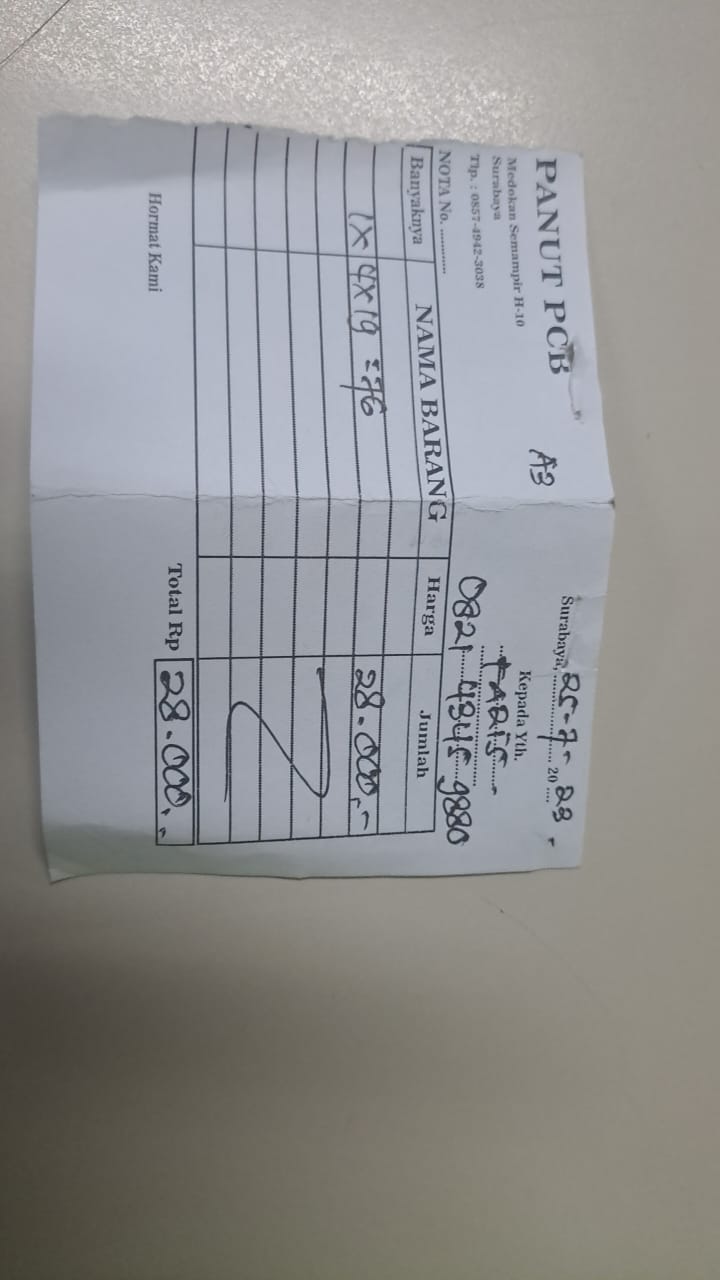 PANUT PCB
A3
Medokan Semampir H-10
Surabaya
Tlp. : 0857-4942-3038
Surabaya, 25-7- 20 23
Kepada Yth.
FARIS
0821 4345 9880
NOTA No. ............
Banyaknya NAMA BARANG Harga Jumlah
1 x 4 x 19 = 76 28.000,-
Total Rp 28.000,-
Hormat Kami